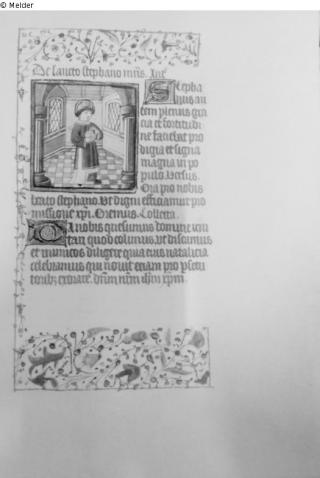 © Melder
De sancto stephano mris. Ane
Stepha
nus au
tem plenus gra
cia et fortitudi
ne faciebat pro
digia et signa
magna in po
pulo. versus.
Ora pro nobis
beate stephane. Ut digni efficiamur pro
missione xpi. Oremus. Collecta.
Da nobis quesumus domine imi
tari quod colimus. ut discamus
et inimicos diligere quia eius natalicia
celebramus qui novit etiam pro persecu
toribus exorare. dnm nrm ihm xpm.